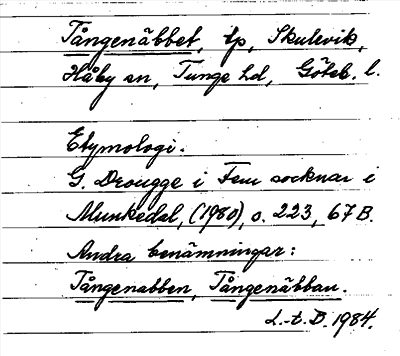 Tångenäbbet, tp, Skulevik,
Håby sn, Tunge hd, Göteb. l.
Etymologi.
G. Drougge i Fem socknar i
Munkedal, (1980), s. 223, 67B.
Andra benämningar:
Tångenabben, Tångenäbban.
L.-t. D. 1984.